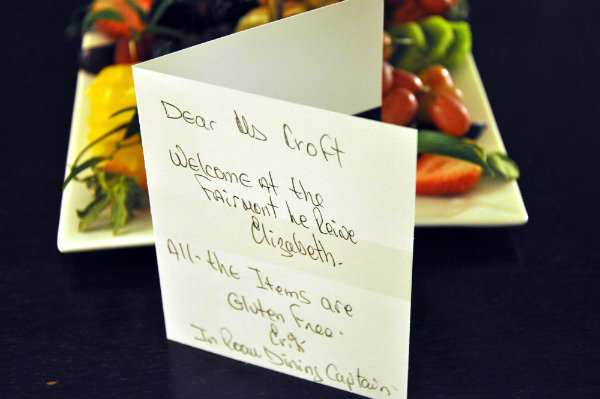 Dear Ms Croft
Welcome At the
Fairmont Le Reine
Elizabeth.
All. the Items are
Gluten Free.
Erik
In Room Dining Captain